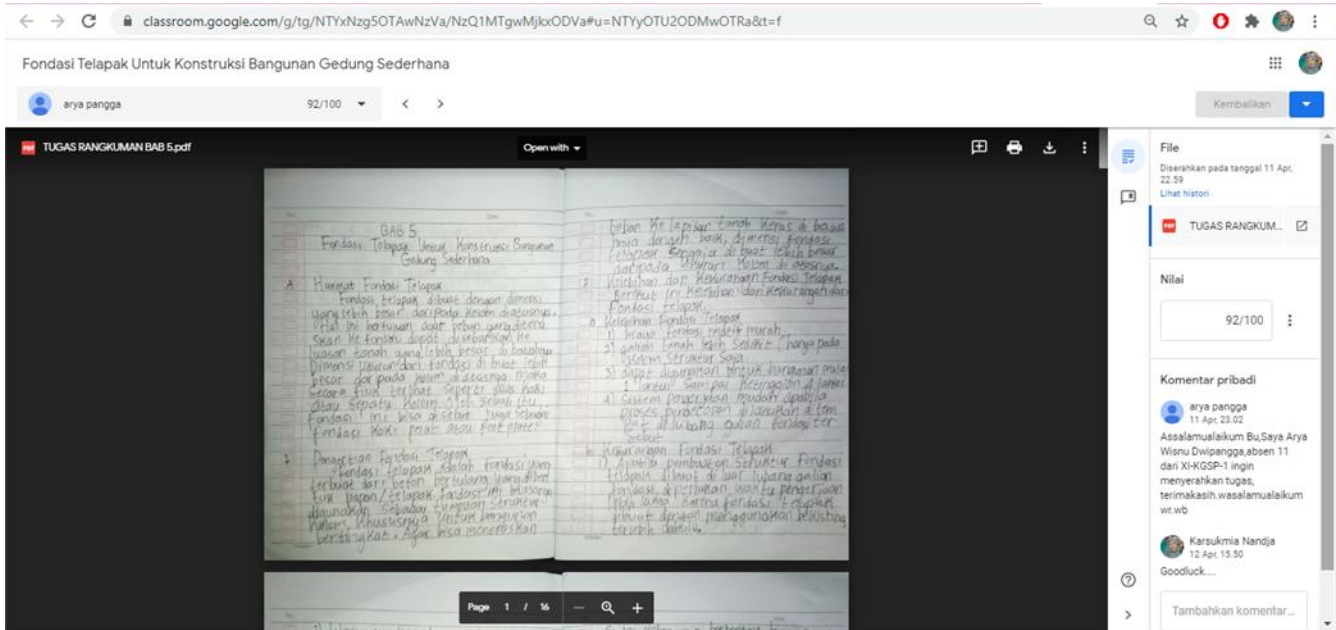 classroom.google.com/g/tg/NTYxNzg5OTAwNzVa/NzQ1MTgwMjkxODVa#u=NTYyOTU2ODMwOTRa&t=f
Fondasi Telapak Untuk Konstruksi Bangunan Gedung Sederhana
arya pangga
92/100
Kembalikan
PDF
TUGAS RANGKUMAN BAB 5.pdf
Open with
BAB 5
Fondasi Telapak Untuk Konstruksi Bangunan
Gedung Sederhana
A Hakikat Fondasi Telapak
Fondasi telapak dibuat dengan dimensi
yang lebih besar daripada kolom diatasnya.
ini bertujuan agar beban yang diteru
skan ke fondasi dapat disebarkan ke
luasan tanah yang lebih besar di bawahnya
Dimensi ukuran dari fondasi di buat lebih
besar dari pada kolom diatasnya maka
secara fisik terlihat seperti kaki
atau sepatu kolom oleh sebab itu,
fondasi ini bisa disebut juga sebagai
fondasi kaki pelat atau foot plate
1 Pengertian Fondasi Telapak
Fondasi telapak adalah fondasi yang
terbuat dari beton bertulang yang dibent
tuk papan/telapak, fondasi ini biasanya
digunakan sebagai tumpuan struktur
kolom, khususnya untuk bangunan
bertingkat. Agar bisa meneruskan
beban ke lapisan tanah keras di bawah
nya dengan baik, dimensi fondasi
telapak sengaja di buat lebih besar
daripada ukuran kolom di atasnya.
2 Kelebihan dan Kekurangan Fondasi Telapak
Berikut ini kelebihan dan kekurangan dari
fondasi telapak.
a. kelebihan fondasi telapak
1) biaya fondasi relatif murah
2) galian tanah lebih sedikit (hanya pada
kolom struktur saja
3) dapat digunakan untuk bangunan mulai
1 lantai sampai ketinggian 4 lantai
4) Sistem pengerjaan mudah apabila
proses pengecoran dilakukan di tem
pat di lubang galian fondasi ter
sebut
b. Kekurangan Fondasi Telapak
1) Apabila pembuatan struktur fondasi
telapak dibuat di luar lubang galian
fondasi, diperlukan waktu pengerjaan
lebih lama karena fondasi telapak
dibuat dengan menggunakan bekisting
terlebih dahulu.
Page 1 / 16
File
Diserahkan pada tanggal 11 Apr,
22.59
Lihat histori
PDF
TUGAS RANGKUM...
Nilai
92/100
Komentar pribadi
arya pangga
11 Apr, 23.02
Assalamualaikum Bu,Saya Arya
Wisnu Dwipangga,absen 11
dari XI-KGSP-1 ingin
menyerahkan tugas,
terimakasih.wasalamualaikum
wr.wb
Karsukmia Nandja
12 Apr, 15.50
Goodluck....
Tambahkan komentar...